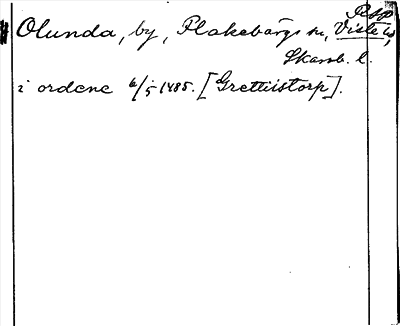 Olunda, by, Plakebärgs sn, Viste hd,
Skarab. l.
i ordene 6/5 1485. [Grettiistorp].